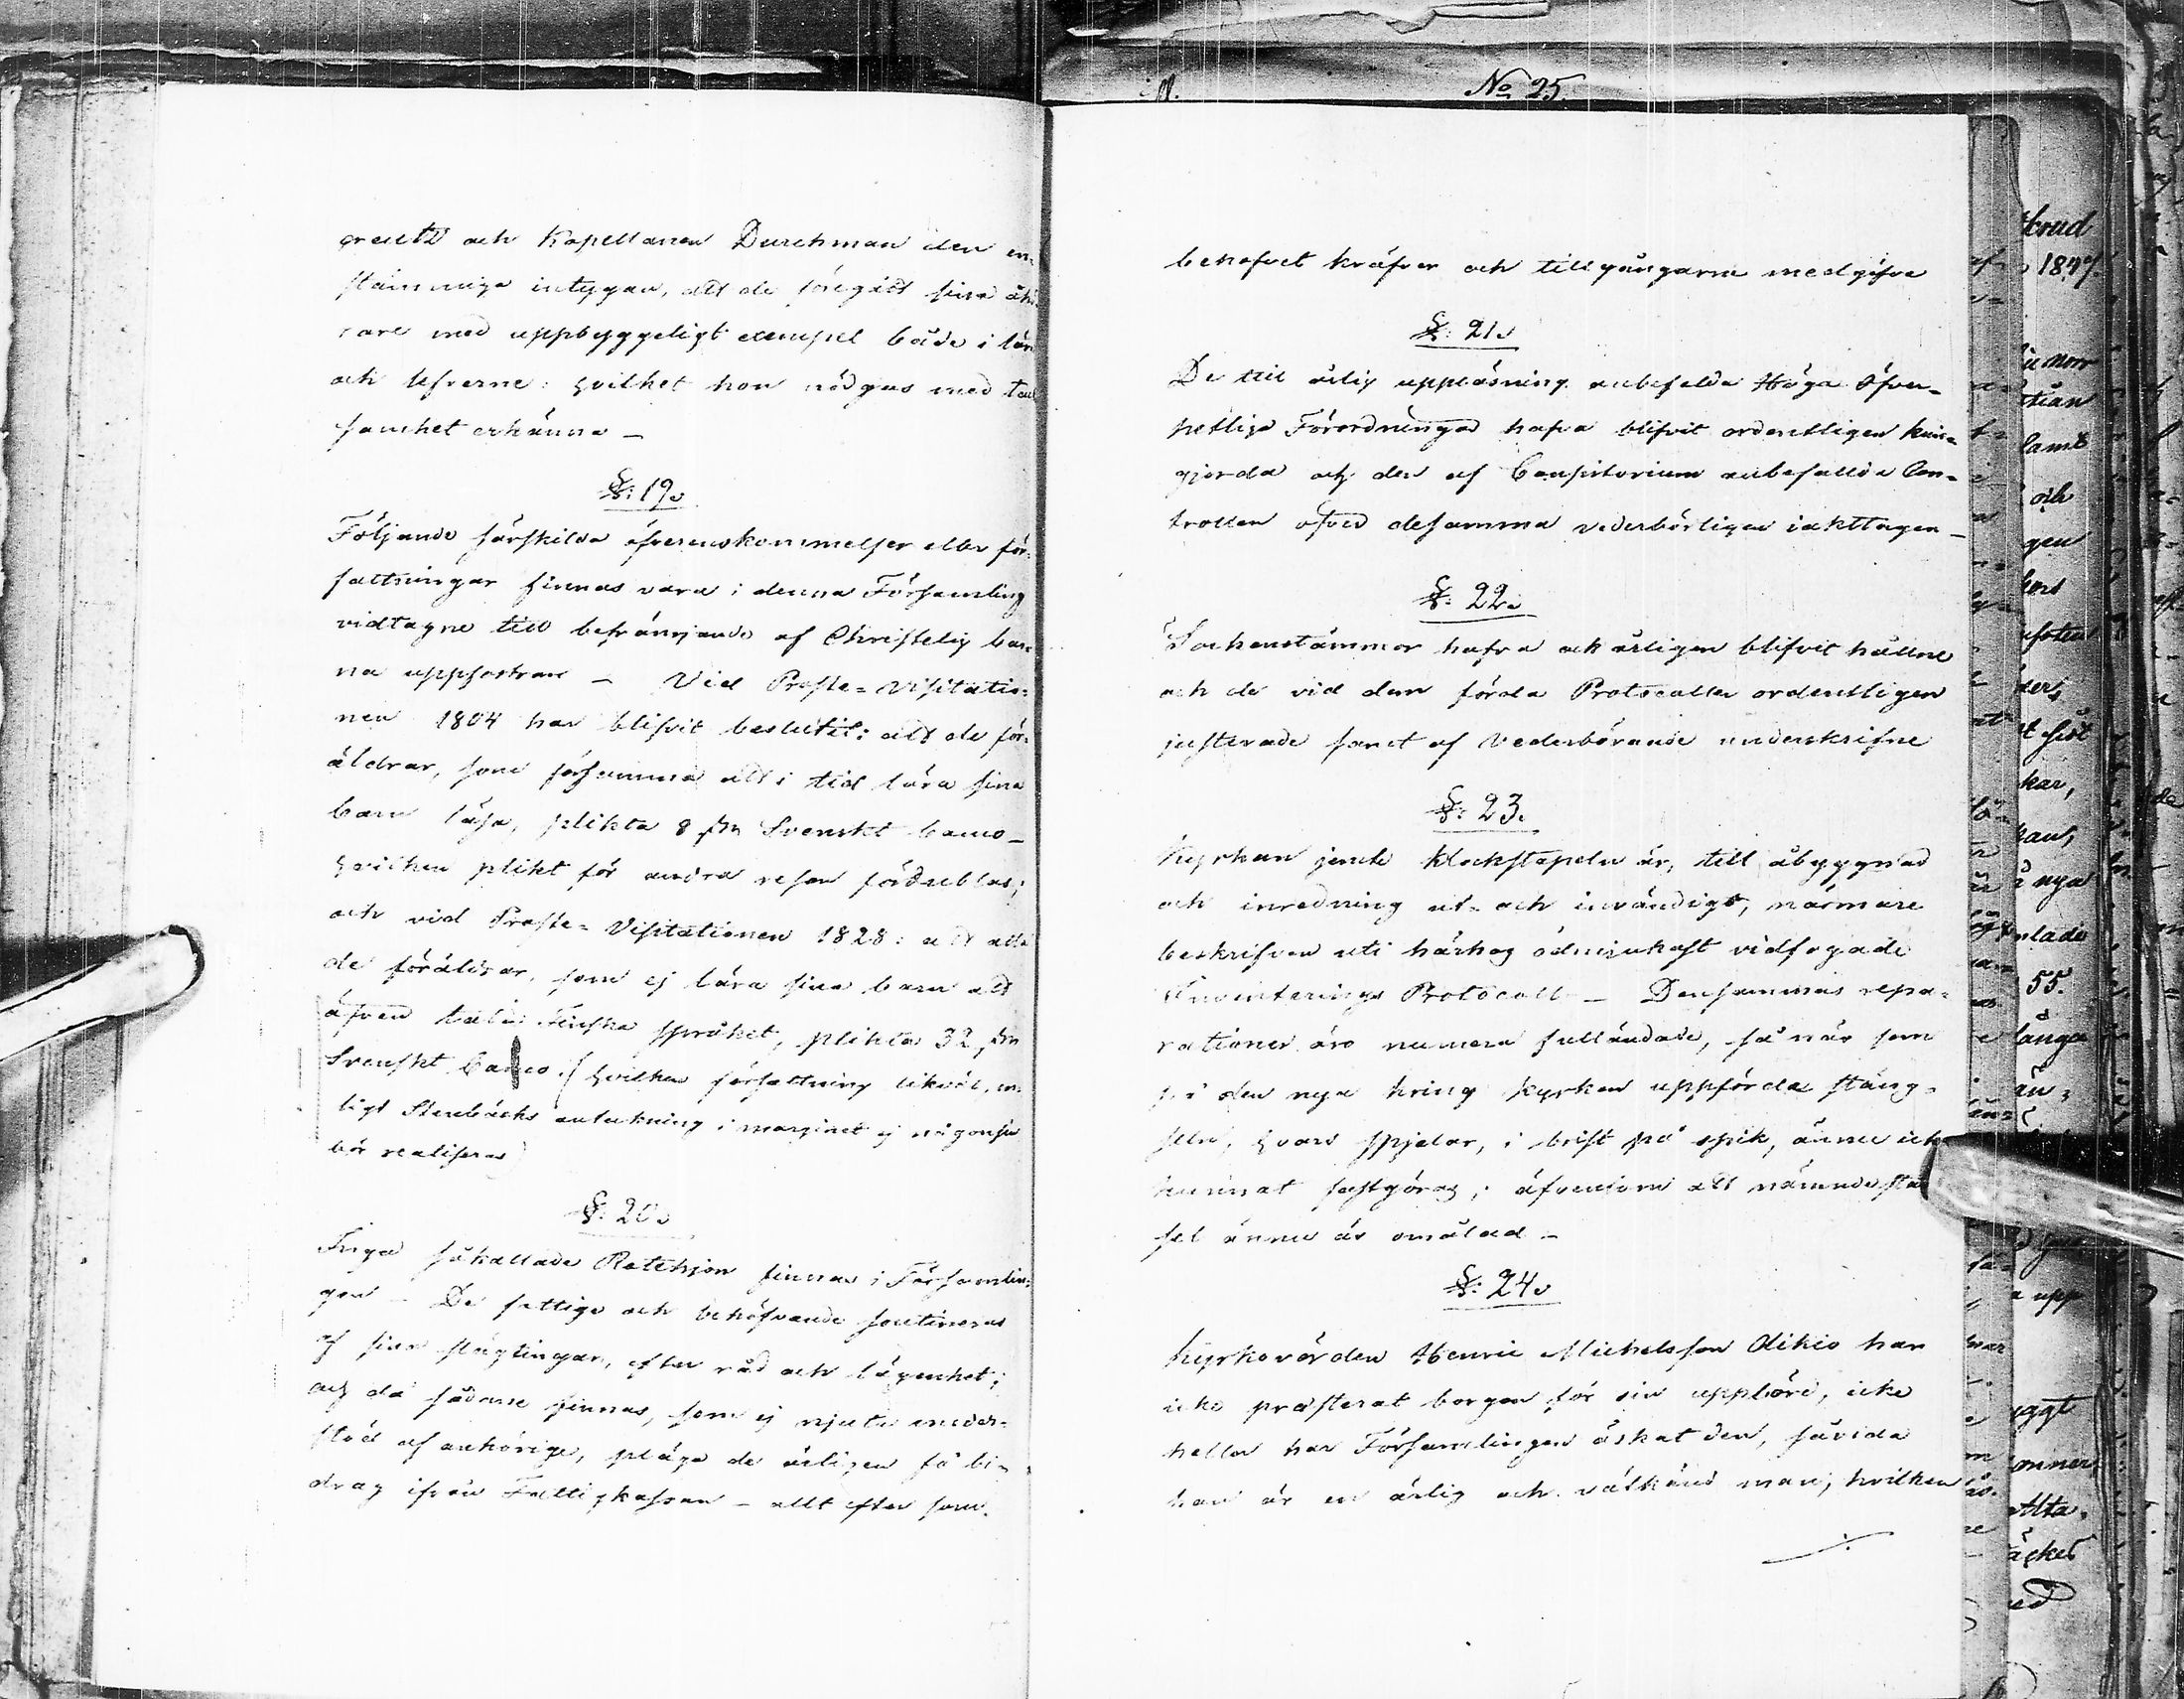 No 25.
och Kapellanen Durchman den en-
stämmiga intygan, att de föregått sina åhö
rare med uppbyggeligt exempel både i lära
och lefverne: hvilket hon nödgas med tack
samhet erkänna –
§: 19.
Följande särskilda öfverenskommelser eller för-
fattningar finnas vara i denna Församling
vidtagne till befrämjande af Christelig bar-
na uppfostran – Vid Proste-Visitatio-
nen 1804 har blifvit beslutit: att de för-
äldrar, som försumma att i tid lära sina
barn läsa, plikta 8 s/m Svenskt banco –
hvilken plikt för andra resan fördubblas;
och vid Proste-Visitationen 1828: att alla
de föräldrar, som ej lära sina barn att
äfven tala Finska språket, plikta 32 s/m
Svenskt banco. (hvilken författning likväl, en-
ligt Stenbäcks anteckning i marginet ej någonsin
bör realiseras)
§: 20.
Inga såkallade Rotehjon finnas i Församlin-
gen – De fattige och behöfvande soutineras
af sina slägtingar, efter råd och lägenhet;
och då sådane finnas, som ej njuta under-
stöd af anhörige, pläga de årligen få bi-
drag ifrån Fattigkassan – allt efter som
behofvet kräfver och tillgångarne medgifva
§: 21.
De till årlig uppläsning anbefalda Höga Öfver-
hetliga Förordningar hafva blifvit ordentligen kun-
gjorda och den af Consistorium anbefallda Con-
trollen öfver desamma vederbörligen iakttagen –
§: 22.
Sockenstämmor hafva ock årligen blifvit hållne
och de vid dem förda Protocoller ordentligen
justerade samt af Vederbörande underskrifne
§: 23.
Kyrkan jemte Klockstapeln är, till åbyggnad
och inredning ut- och invändigt, närmare
beskrifven uti härhos ödmjukast vidfogade
Inventerings Protocoll – Densammas repa-
rationer äro numera fulländade, så när som
på den nya kring Kyrkan uppförda stäng-
seln, hvars spjelar, i brist på spik, ännu icke
kunnat fastgöras; äfvensom att nämnde stäng
sel ännu är omålad –
§: 24.
Kyrkovärden Henric Michelsson Olikio har
icke præsterat borgen för sin uppbörd, icke
heller har Församlingen äskat den, såvida
han är en ärlig och välkänd man, hvilken